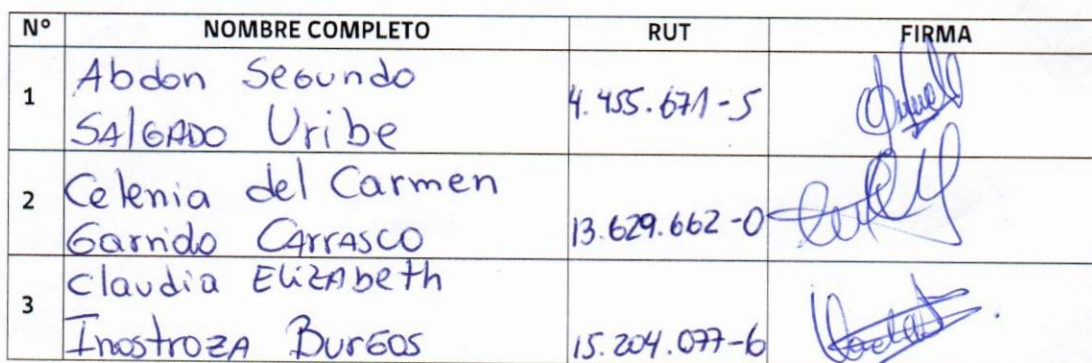 N° NOMBRE COMPLETO RUT FIRMA
1 Abdon Segundo
SAlGADO Uribe 4.455.671-5
2 Celenia del Carmen
Garrido CArrASCO 13.629.662-0
3 Claudia ElizAbeth
InostrozA Burgos 15.204.077-6